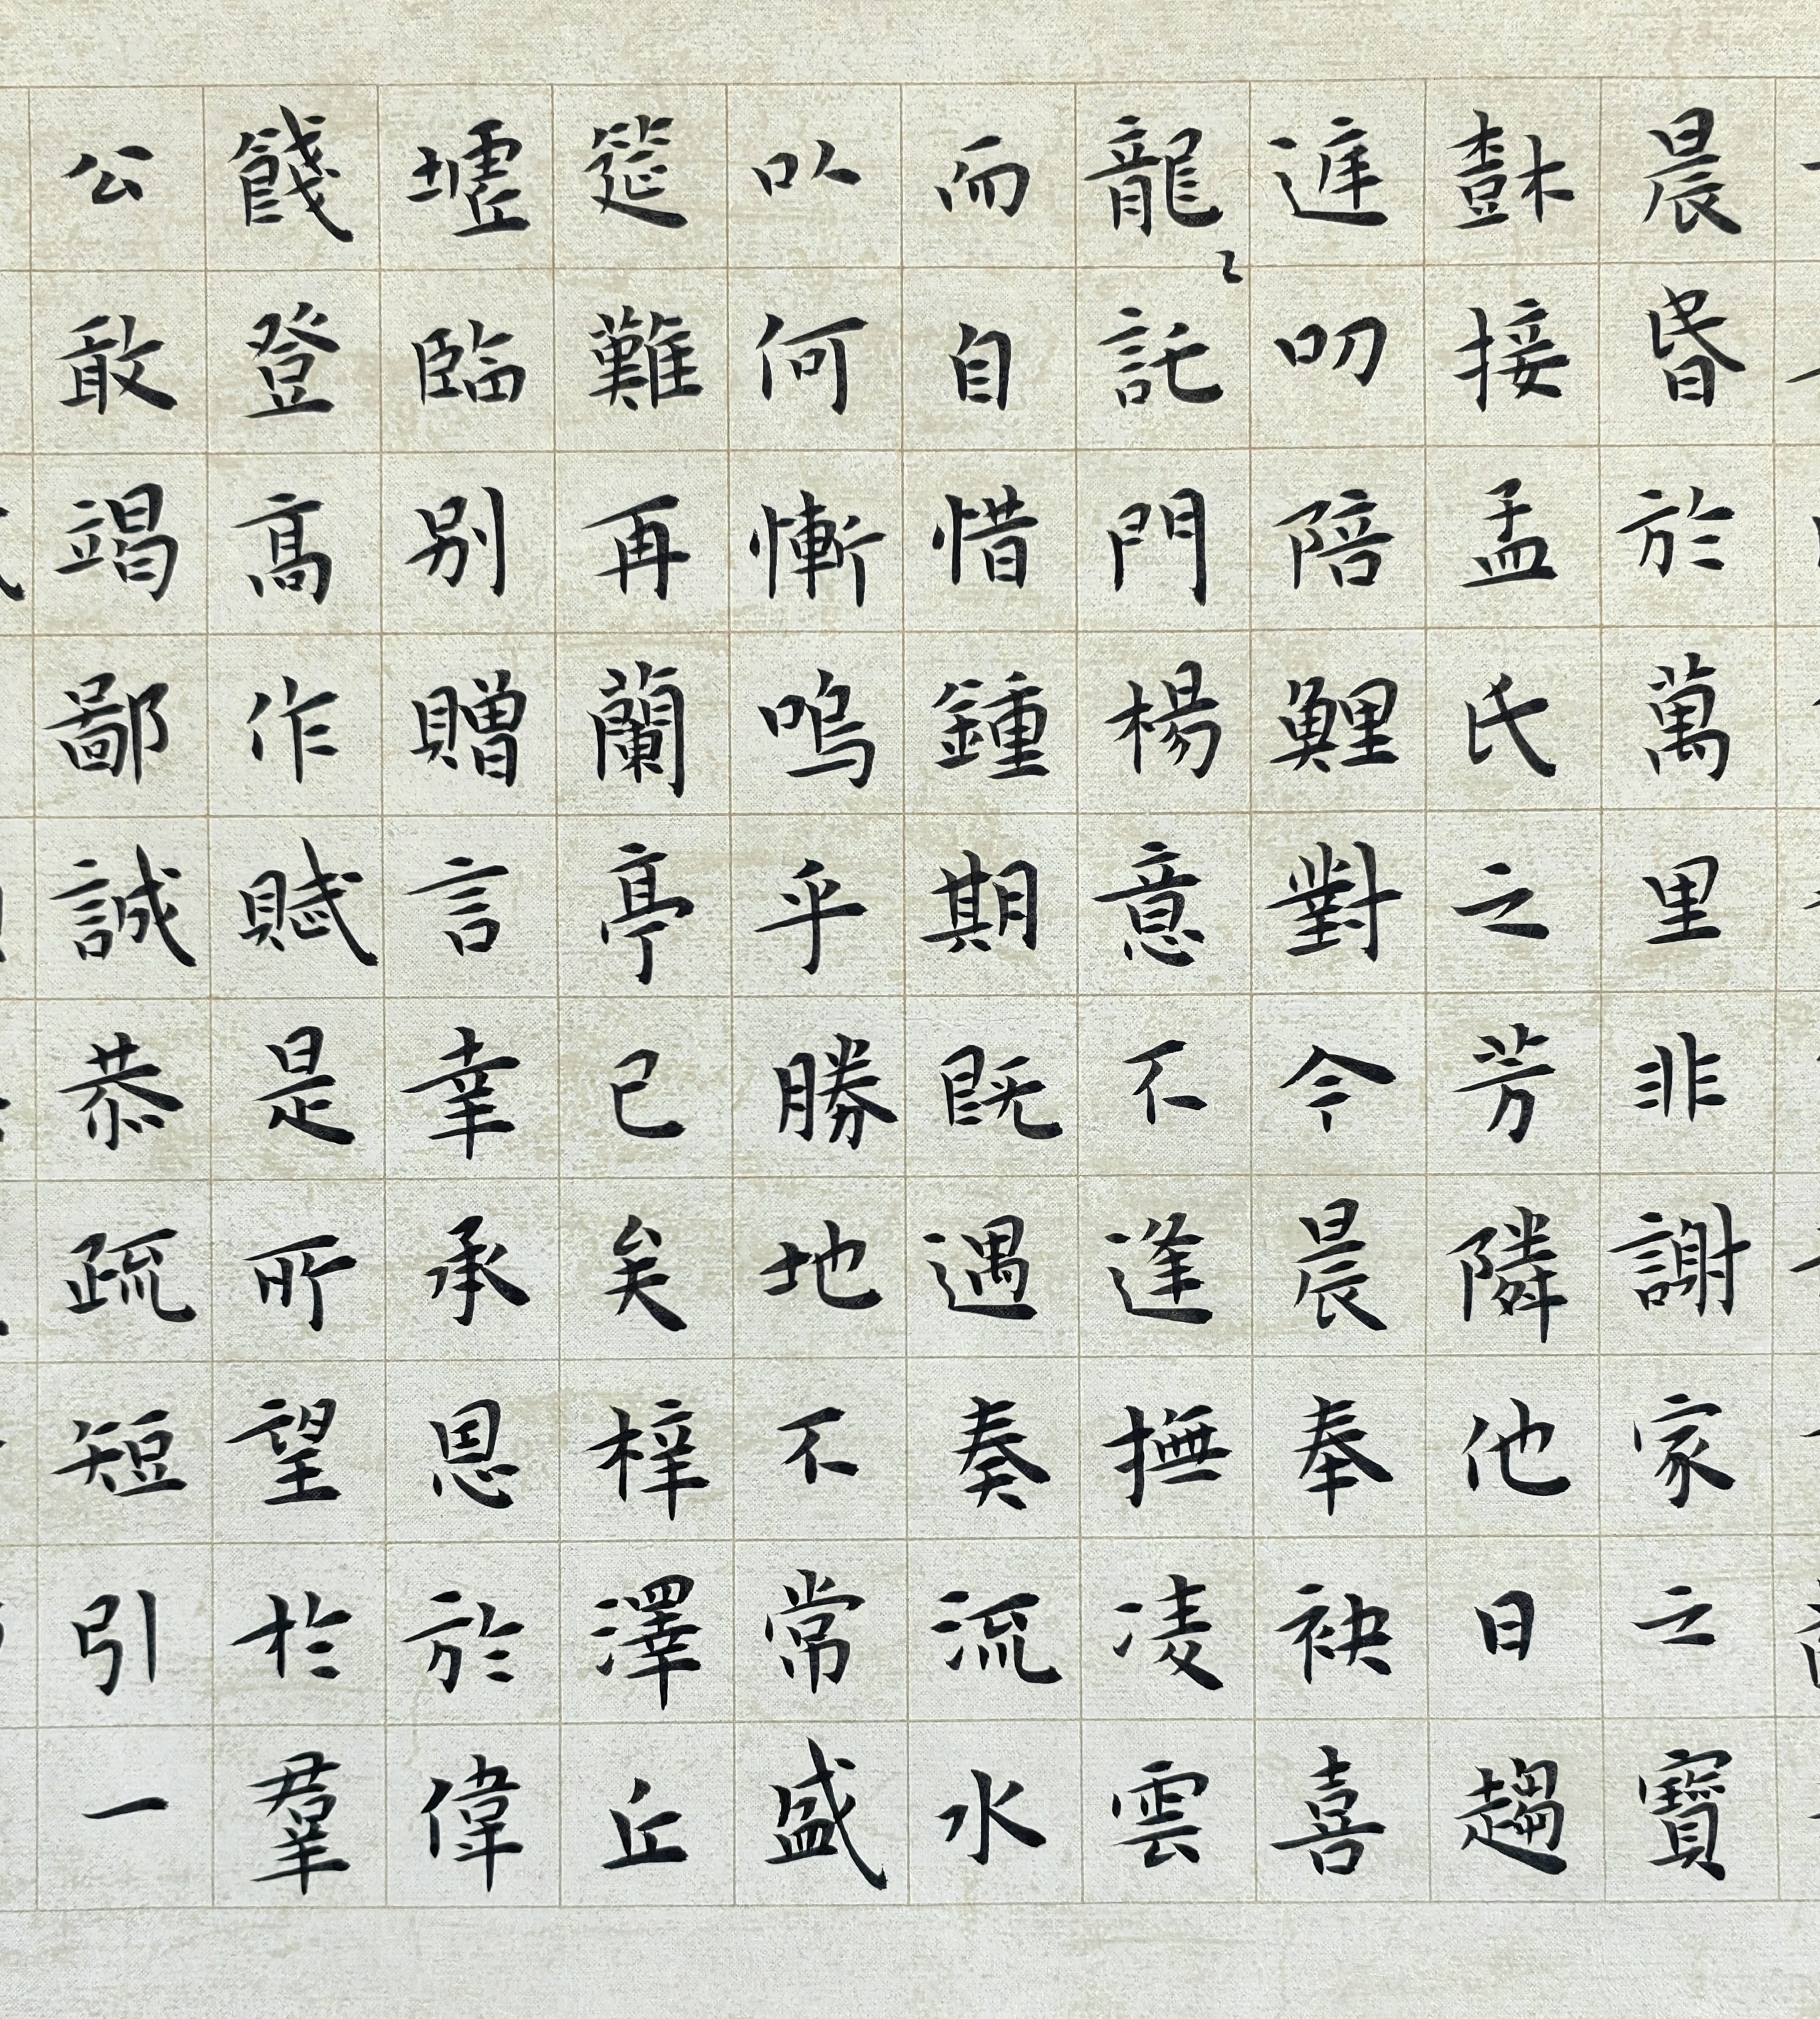 晨昬於萬里非謝家之寶
樹接孟氏之芳隣他日趨
庭叨陪鯉對今晨奉袂喜
龍託門楊意不逢撫凌雲
而自惜鍾期既遇奏流水
以何慚嗚乎勝地不常盛
筵難再蘭亭已矣梓澤丘
墟臨別贈言幸承恩於偉
餞登高作賦是所望於羣
公敢竭鄙誠恭疏短引一